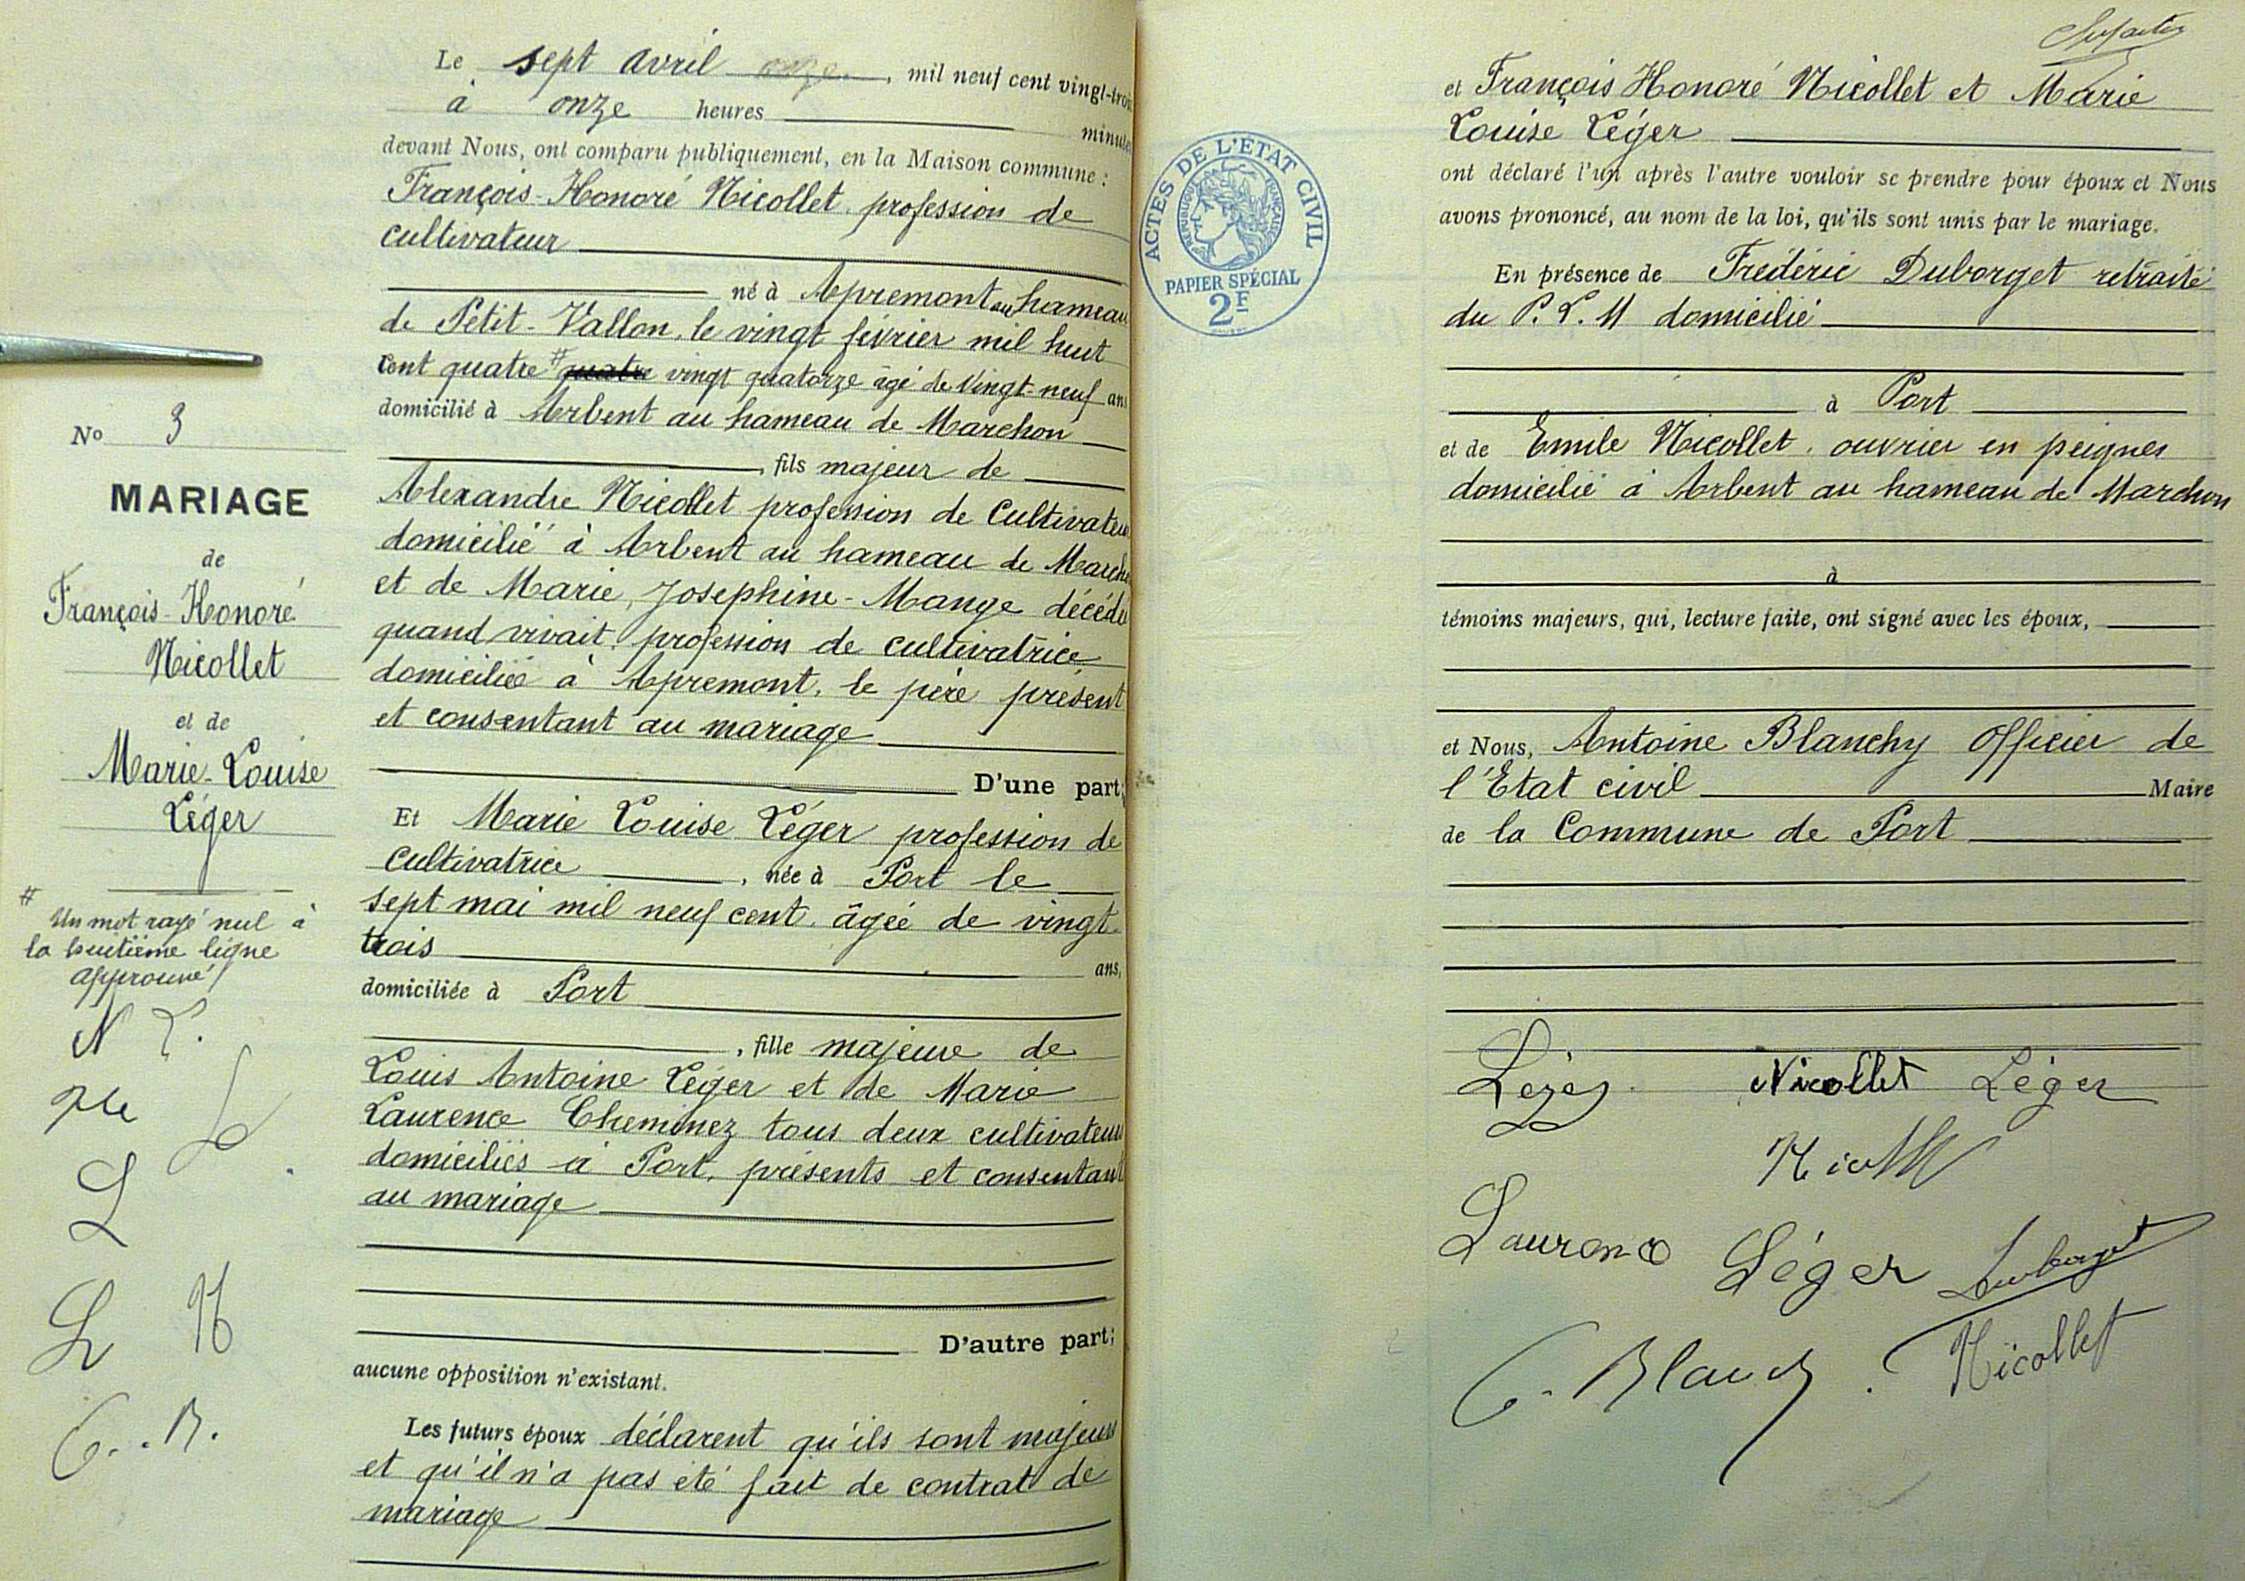 Le sept avril onze, mil neuf cent vingt-trois
à onze heures minutes
devant Nous, ont comparu publiquement, en la Maison commune :
François-Honoré Nicollet profession de
cultivateur
né à Apremont au hameau
de Petit-Vallon, le vingt février mil huit
cent quatre # quatre vingt quatorze âgé de vingt-neuf ans
domicilié à Arbent au hameau de Marchon
, fils majeur de
Alexandre Nicollet profession de cultivateur
domicilié à Arbent au hameau de Marchon
et de Marie, Josephine-Mange décédée
quand vivait profession de cultivatrice
domiciliée à Apremont, le père présent
et consentant au mariage
D'une part;
Et Marie Louise Léger profession de
cultivatrice, née à Port le
sept mai mil neuf cent, âgée de vingt
trois ans,
domiciliée à Port
, fille majeure de
Louis Antoine Léger et de Marie
Laurence Cheminez tous deux cultivateurs
domiciliés à Port, présents et consentant
au mariage
D'autre part;
aucune opposition n'existant.
Les futurs époux déclarent qu'ils sont majeurs
et qu'il n'a pas été fait de contrat de
mariage
No 3
MARIAGE
de
François-Honoré
Nicollet
et de
Marie-Louise
Léger
# Un mot rayé nul à
la huitième ligne
approuvé
N L.
L
L
L N
B.
ACTES DE L'ÉTAT CIVIL
RÉPUBLIQUE FRANÇAISE
PAPIER SPÉCIAL
2F
et François Honoré Nicollet et Marie
Louise Léger
ont déclaré l'un après l'autre vouloir se prendre pour époux et Nous
avons prononcé, au nom de la loi, qu'ils sont unis par le mariage.
En présence de Frédéric Duborget retraité
du P. L. M domicilié
à Port
et de Emile Nicollet, ouvrier en peignes
domicilié à Arbent au hameau de Marchon
à
témoins majeurs, qui, lecture faite, ont signé avec les époux,
et Nous, Antoine Blanchy Officier de
l'Etat civil Maire
de la Commune de Port
Nicollet Léger
Laurence Léger Duborget
Nicollet